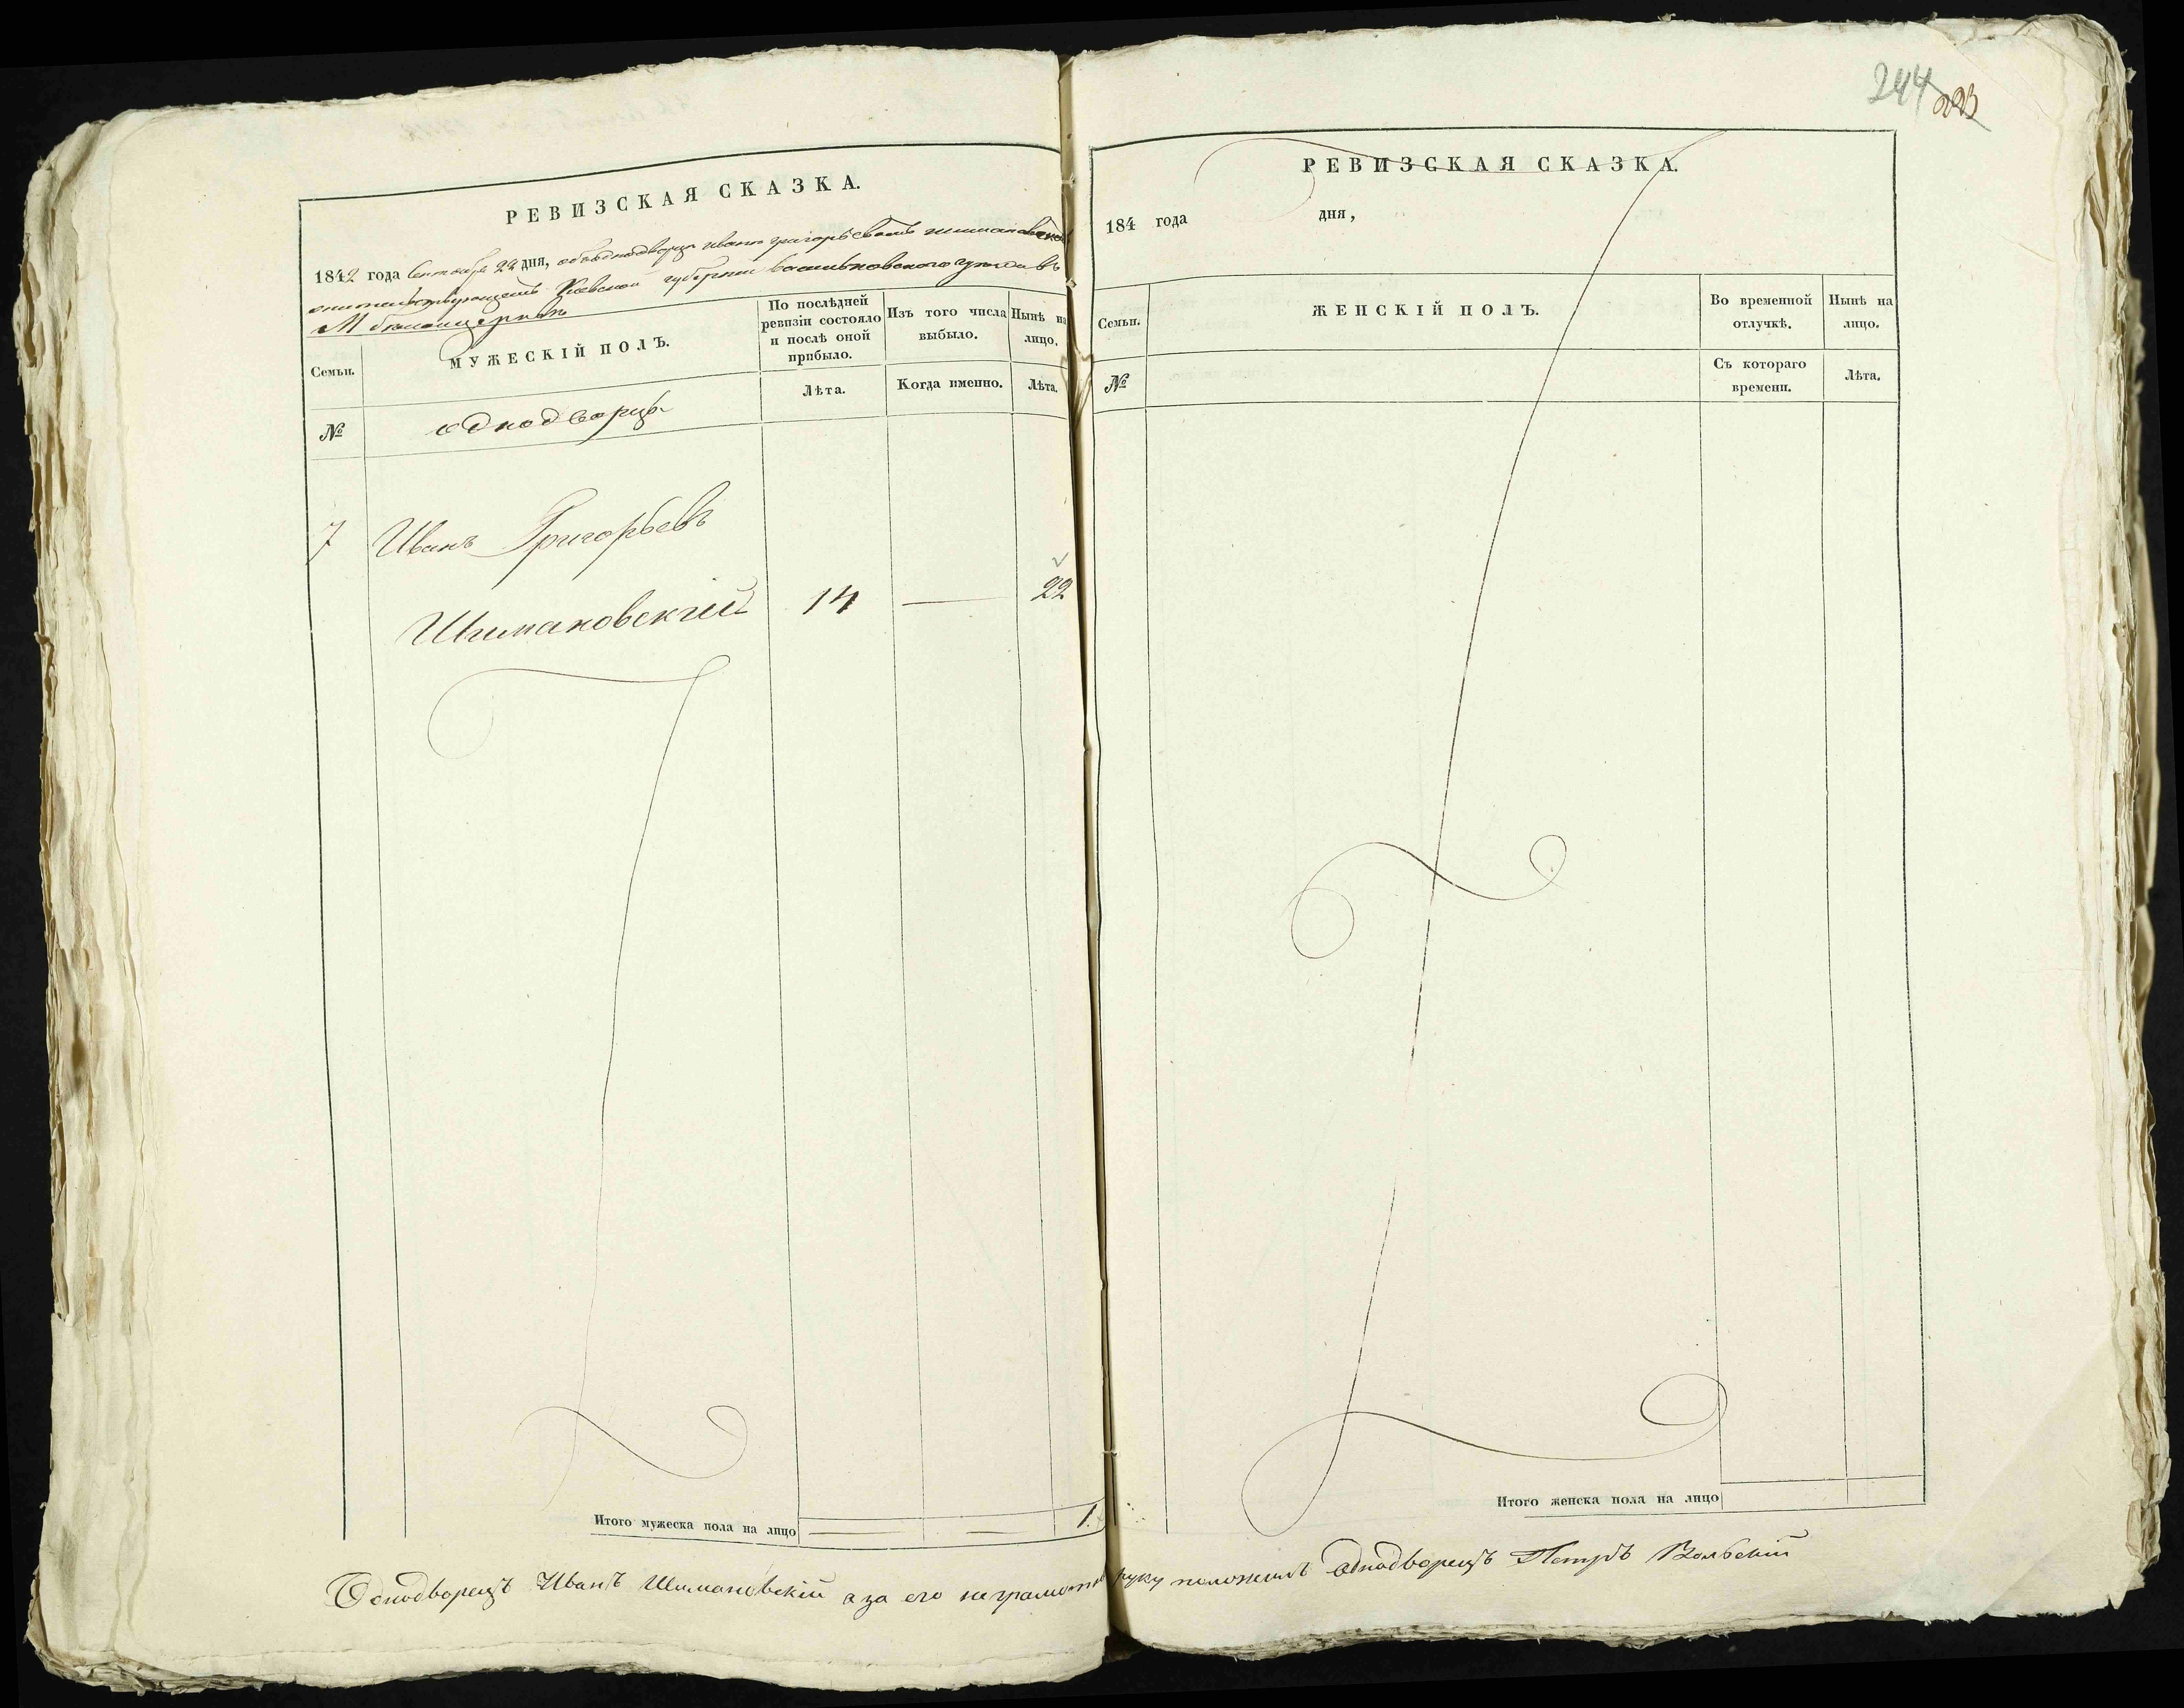 РЕВИЗСКАЯ СКАЗКА.
1842 года Сентября 22 дня, объ однодворце иване григорьевомъ шимановскомъ
жительствующемъ Киевской губернии васильковского уезда въ
М белоицеркви
Семьи.
МУЖЕСКІЙ ПОЛЪ.
По послѣдней ревизіи состояло и послѣ оной прибыло.
Изъ того числа выбыло.
Нынѣ на лицо.
№
однодворцы
Лѣта.
Когда именно.
Лѣта.
7 Иванъ Григорьевъ
Шимановскій 14 — 22
Итого мужеска пола на лицо — — 1.
244 223
РЕВИЗСКАЯ СКАЗКА.
184 года дня,
Семьи.
ЖЕНСКІЙ ПОЛЪ.
Во временной отлучкѣ.
Нынѣ на лицо.
№
Съ котораго времени.
Лѣта.
Итого женска пола на лицо
Однодворецъ Иванъ Шимановскій а за его неграмотн руку положилъ Однодворецъ Петръ Вольскій